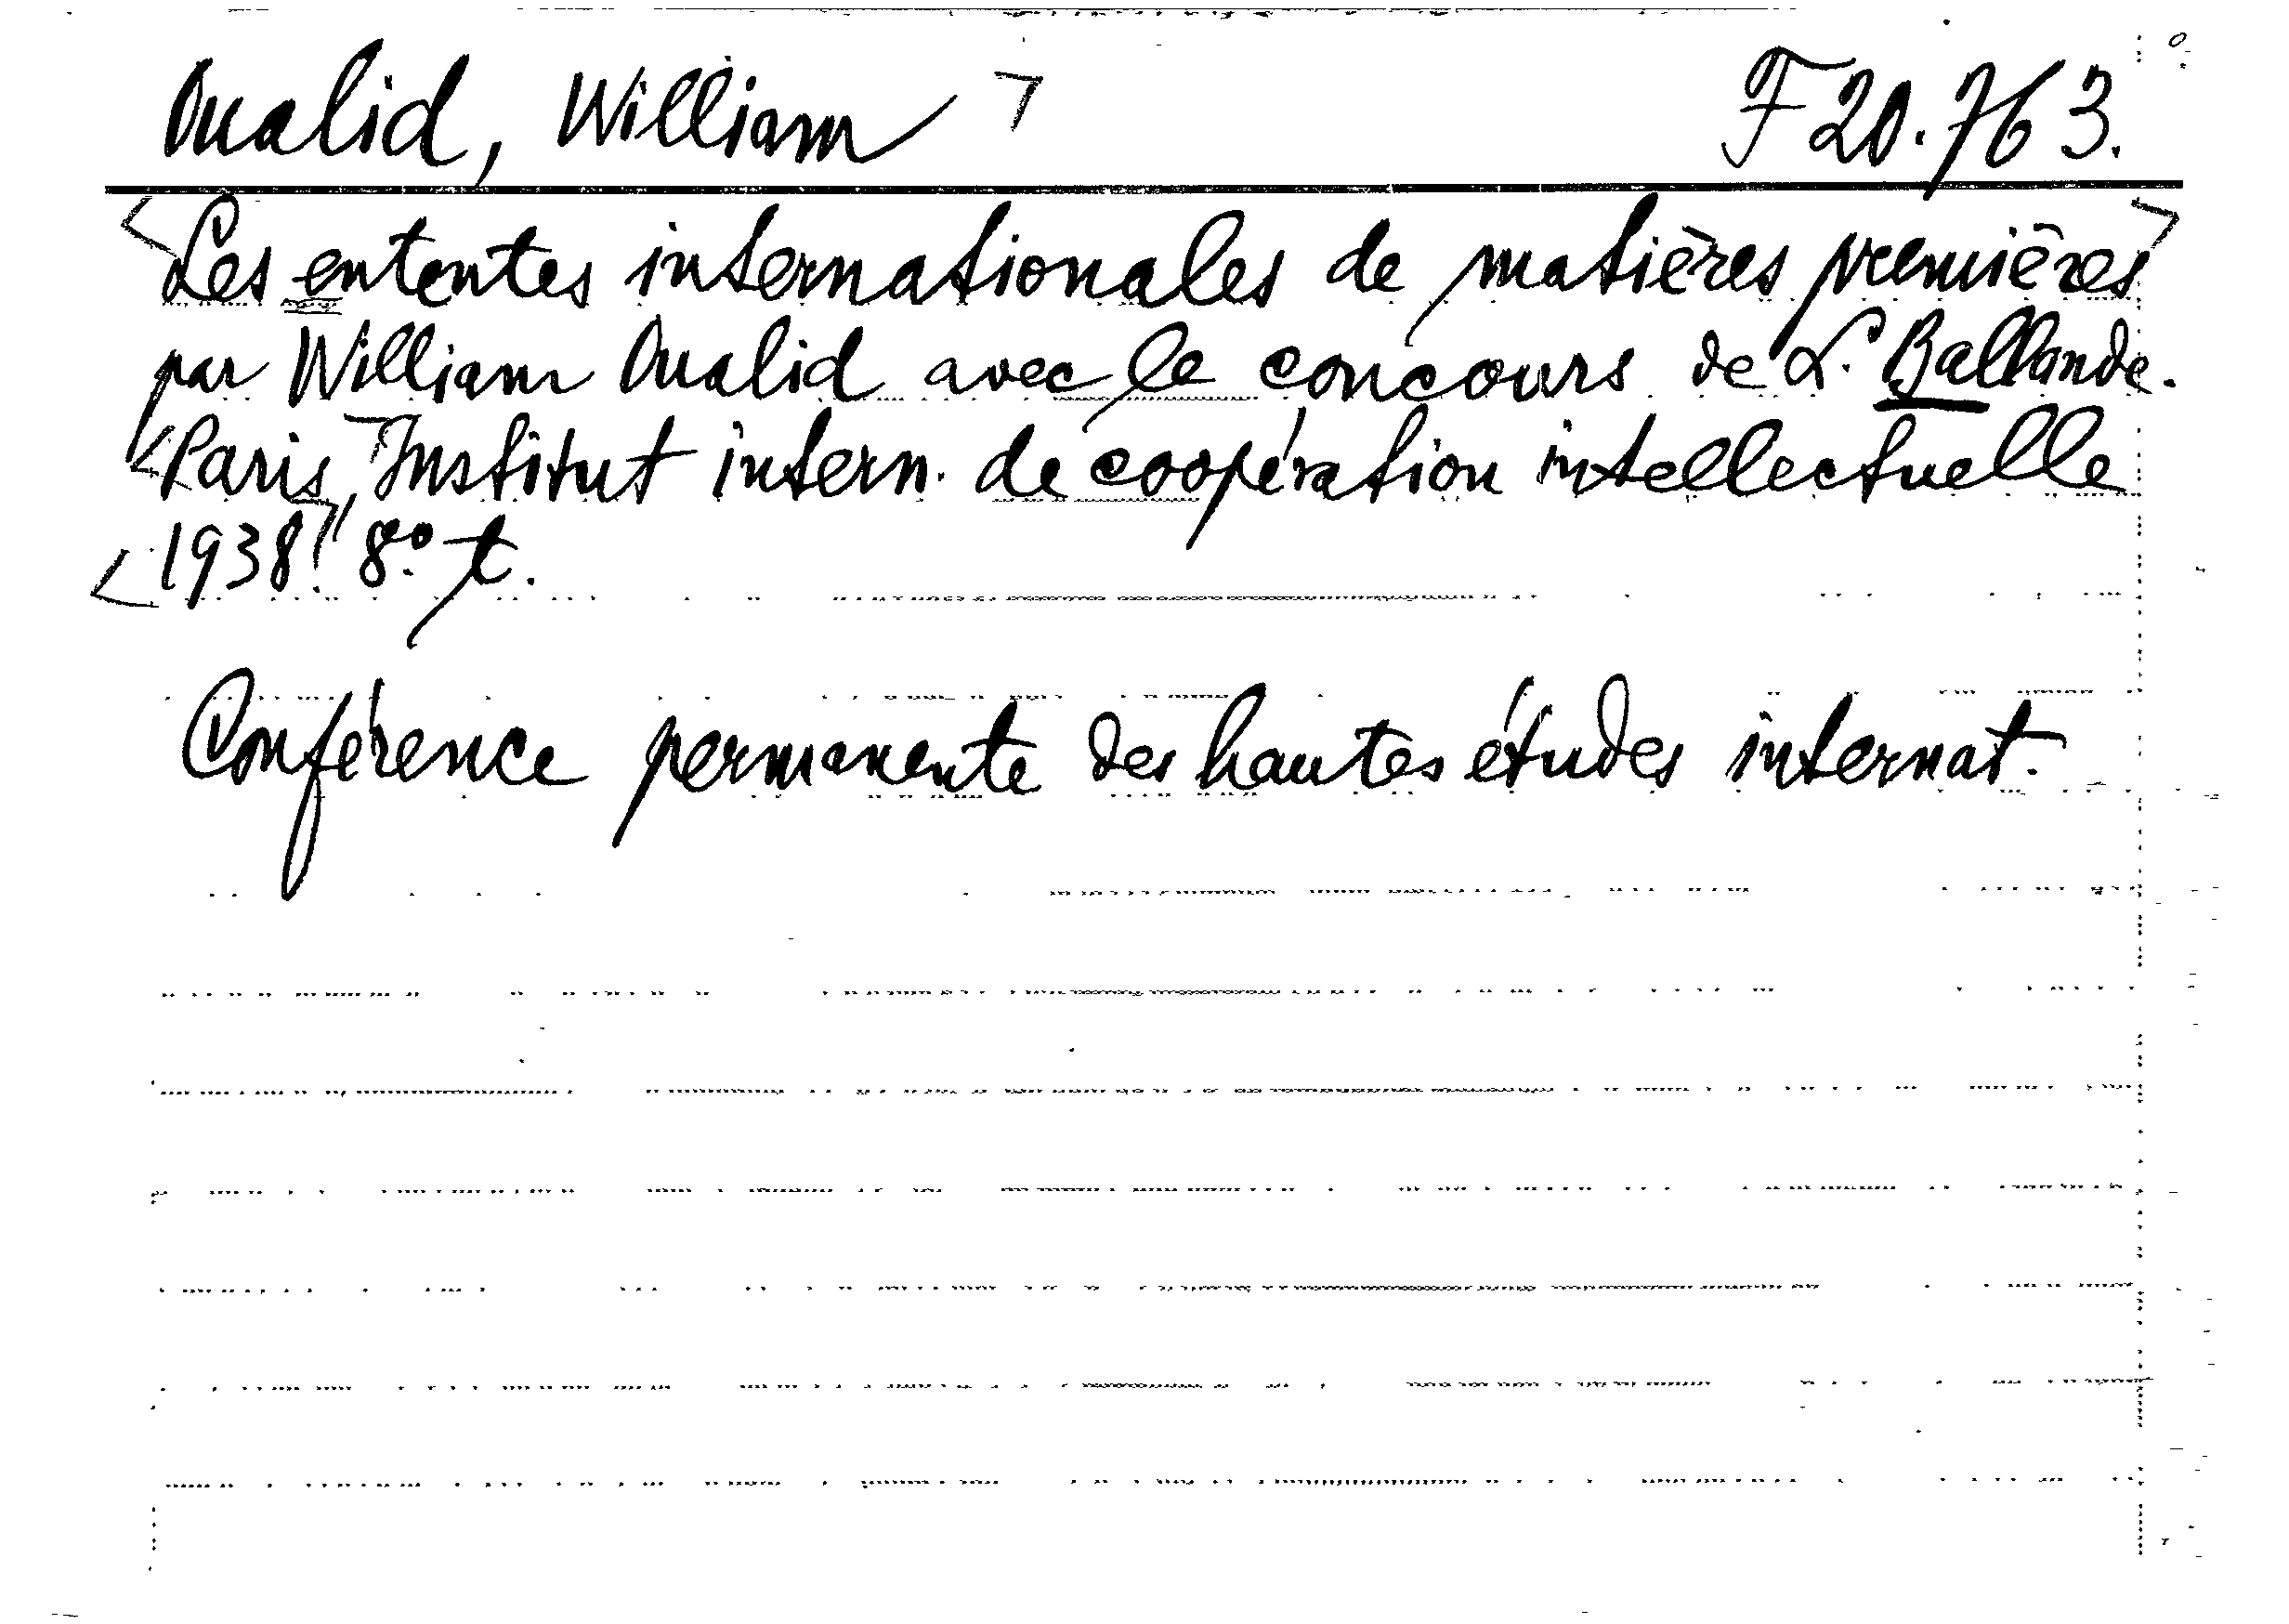 Oualid, William F 20.763.
Les ententes internationales de matières premières
par William Oualid avec le concours de L. Ballande.
Paris, Institut intern. de coopération intellectuelle
1938. 8° t.
Conférence permanente des hautes études internat.